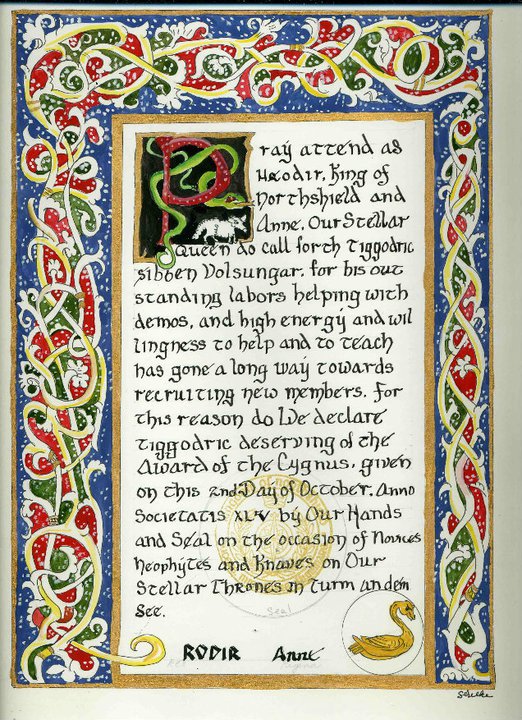 Pray attend as
Hrodir, King of
Northshield and
Anne, Our Stellar
Queen do call forth Tiggodric
Sibben Volsungar, for his out
standing labors helping with
demos, and high energy and wil
lingness to help and to teach
has gone a long way towards
recruiting new members. For
this reason do We declare
Tiggodric deserving of the
Award of the Cygnus, given
on this 2nd Day of October, Anno
Societatis XLV by Our Hands
and Seal on the occasion of Novices
Neophytes and Knaves on Our
Stellar Thrones in Turm an dem
See.
Seal
RODIR Anne